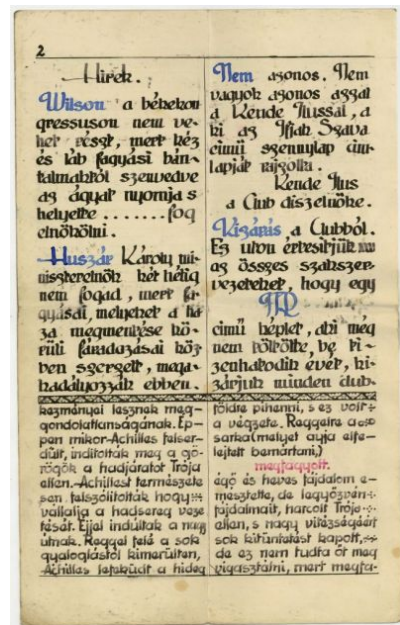 2
Hirek.
Wilson a békekon-
gressuson nem ve-
het részt, mert kéz
és láb fagyási bán-
talmaktól szenvedve
az ágyat nyomja s
helyette .......fog
elnökölni.
Huszár Károly mi-
niszterelnök két hétig
nem fogad, mert fa-
gyásai, melyeket a ha
za megmentése kö-
rüli fáradozásai köz
ben szerzett, mega-
kadályozzák ebben.
Nem azonos. Nem
vagyok azonos azzal
a Kende Ilussal, a
ki az Ifjak Szava
cimü szennylap cim-
lapját rajzolta.
Kende Ilus
a Club diszelnöke.
Kizárás a Clubból.
Ez uton értesitjük
az összes szakszer-
vezeteket, hogy egy
cimü képlet, aki még
nem töltötte be ti-
zenhatodik évét, ki-
zárjuk minden club-
kezményei lesznek meg-
gondolatlanságának. Ép-
pen mikor Achilles felser-
dült, inditották meg a gö-
rögök a hadjáratot Trója
ellen. Achillest természete
sen felszólitották hogy
vállalja a hadsereg veze
tését. Éjjel indultak a nagy
útnak. Reggel felé a sok
gyaloglástól kimerülten,
Achilles lefeküdt a hideg
földre pihenni, s ez volt
a végzete. Reggelre a
sarka(melyet anyja elfe-
lejtett bemártani,)
megfagyott.
égő és heves fájdalom e-
mésztette, de legyőzvén
fájdalmait, harcolt Trója
ellen, s nagy vitézségéért
sok kitüntetést kapott,
de ez nem tudta őt meg
vigasztalni, mert megfa-